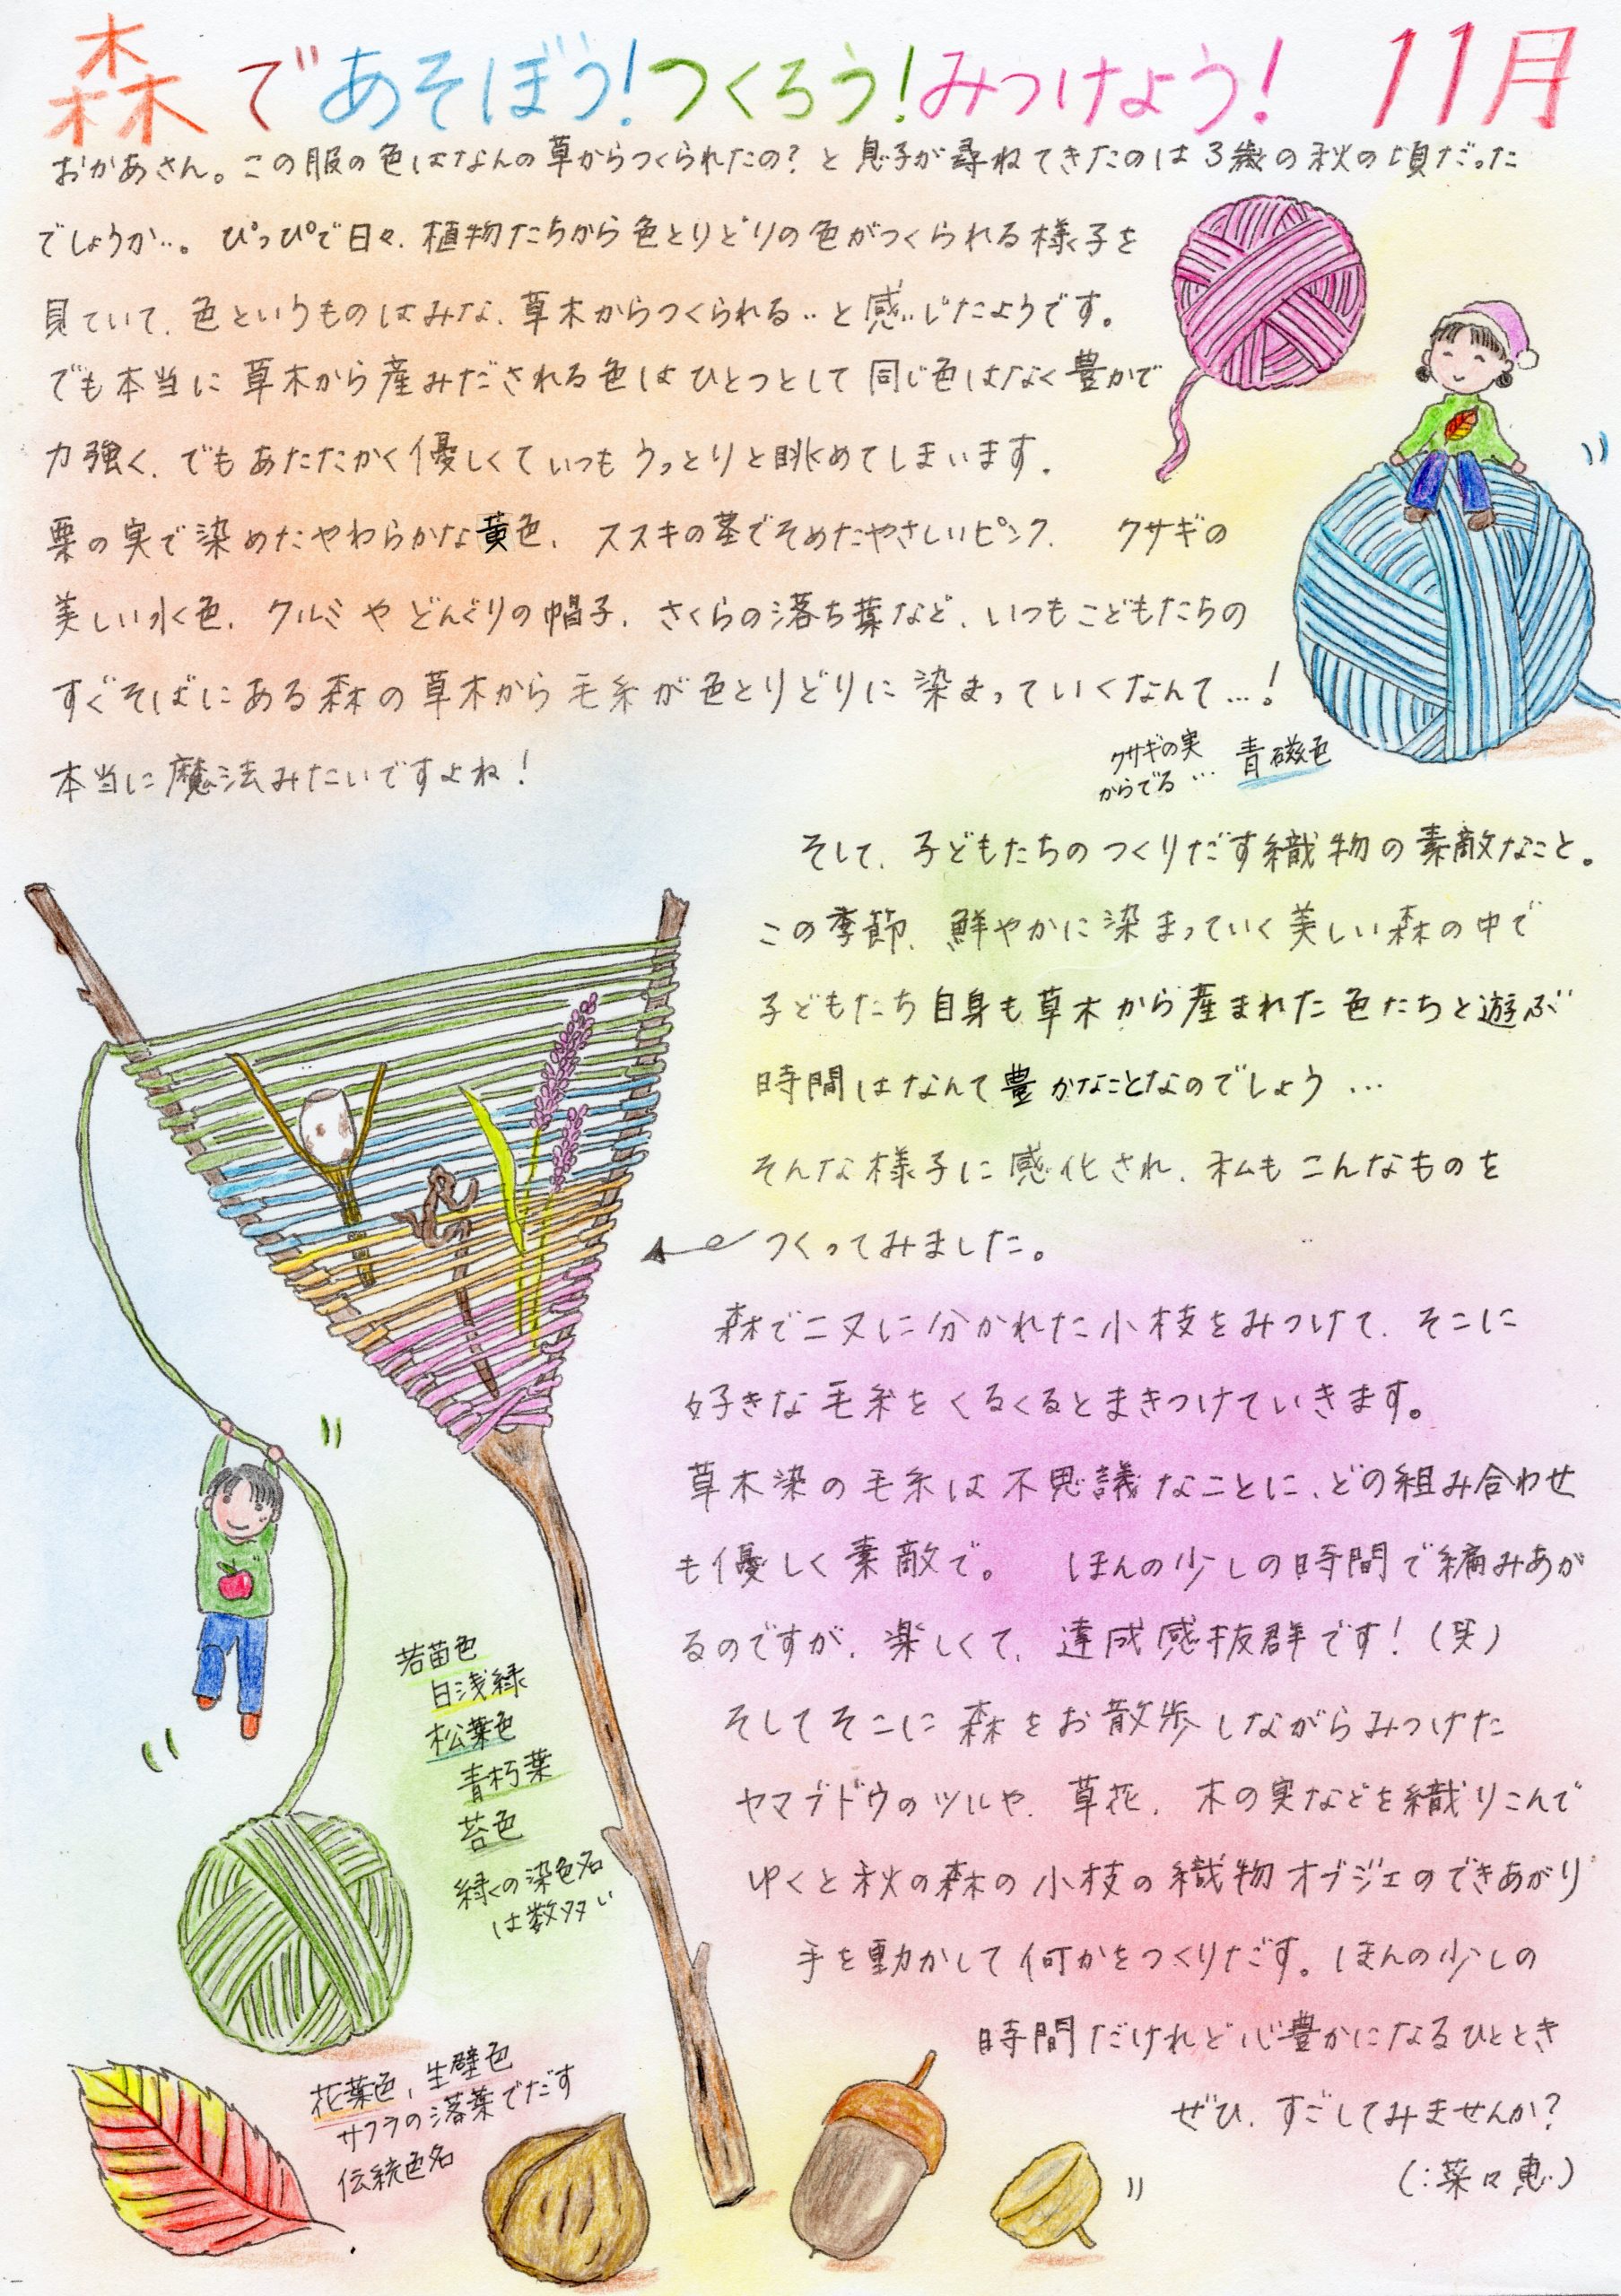 森であそぼう！つくろう！みつけよう！ 11月
おかあさん。この服の色はなんの草からつくられたの？と息子が尋ねてきたのは3歳の秋の頃だった
でしょうか…。ぴっぴで日々、植物たちから色とりどりの色がつくられる様子を
見ていて、色というものはみな、草木からつくられる‥と感じたようです。
でも本当に草木から産みだされる色はひとつとして同じ色はなく豊かで
力強く、でもあたたかく優しくていつもうっとりと眺めてしまいます。
栗の実で染めたやわらかな黄色、ススキの茎でそめたやさしいピンク、クサギの
美しい水色、クルミやどんぐりの帽子、さくらの落ち葉など、いつもこどもたちの
すぐそばにある森の草木から毛糸が色とりどりに染まっていくなんて…！
本当に魔法みたいですよね！
クサギの実
からでる… 青磁色
そして、子どもたちのつくりだす織物の素敵なこと。
この季節、鮮やかに染まっていく美しい森の中で
子どもたち自身も草木から産まれた色たちと遊ぶ
時間はなんて豊かなことなのでしょう…
そんな様子に感化され、私もこんなものを
つくってみました。
森で二又に分かれた小枝をみつけて、そこに
好きな毛糸をくるくるとまきつけていきます。
草木染の毛糸は不思議なことに、どの組み合わせ
も優しく素敵で。 ほんの少しの時間で編みあが
るのですが、楽しくて、達成感抜群です！(笑)
そしてそこに森をお散歩しながらみつけた
ヤマブドウのツルや、草花、木の実などを織りこんで
ゆくと秋の森の小枝の織物オブジェのできあがり
手を動かして何かをつくりだす。ほんの少しの
時間だけれど心豊かになるひととき
ぜひ、すごしてみませんか？
(:菜々恵)
若苗色
白浅緑
松葉色
青朽葉
苔色
緑の染色名
は数多い
花葉色、生壁色
サクラの落葉でだす
伝統色名